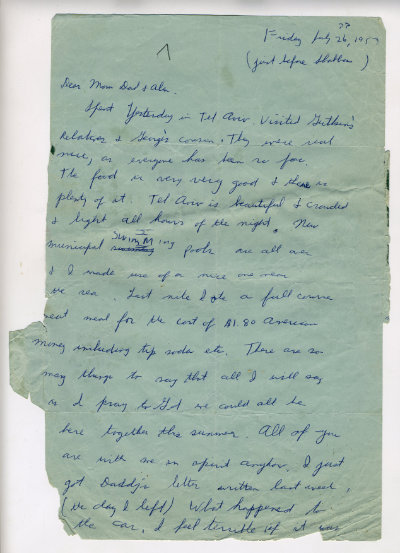 Friday July 26, 1957
??
(just before Shabbas)
Dear Mom Dad & Alan.
Spent Yesterday in Tel Aviv. Visited
Relatives & cousin. They were real
nice, as everyone has been so far.
The food is very very good & there is
plenty of it. Tel Aviv is beautiful & crowded
& light all hours of the night. New
municipal swimming pools are all over
& I made use of a nice one near
the sea. Last nite I ate a full course
meat meal for the cost of $1.80 American
money including tip soda etc. There are so
many things to say that all I will say
is I pray to G-d we could all be
here together this summer. All of you
are with me in spirit anyhow. I just
got Daddy's letter written last week,
(the day I left) What happened to
the car, I feel terrible if it was